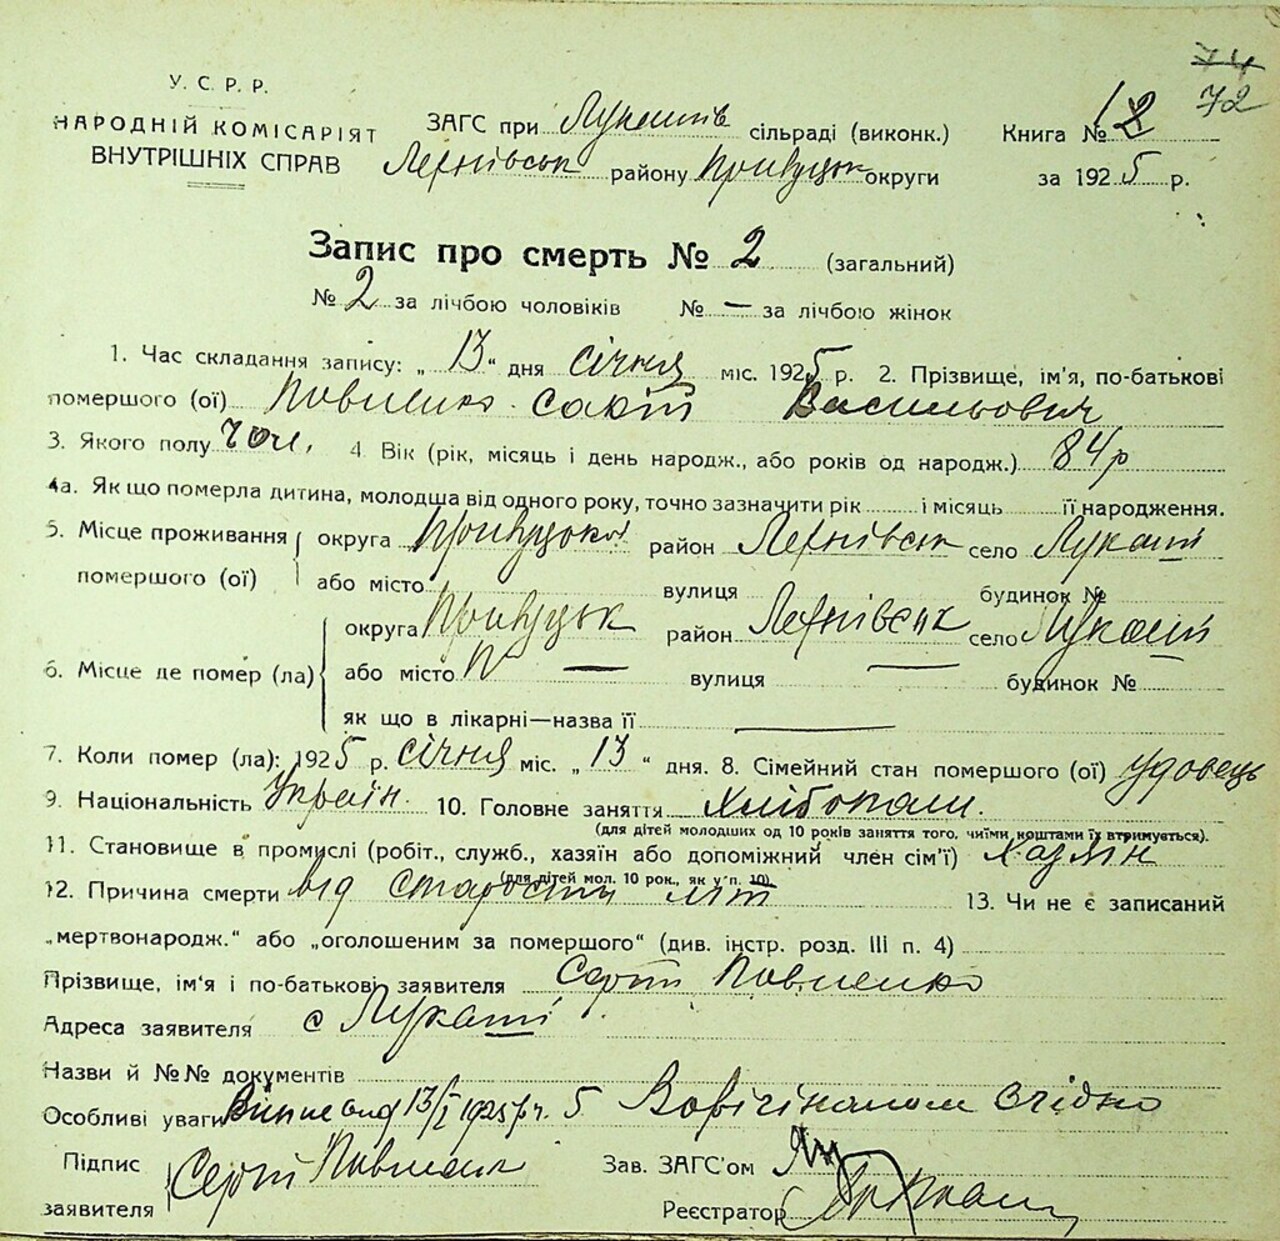 74
72
У. С. Р. Р.
НАРОДНІЙ КОМІСАРІЯТ
ВНУТРІШНІХ СПРАВ
ЗАГС при Лукашів сільраді (виконк.)
району Прилуцьк округи
Книга № 12
за 1925 р.
Запис про смерть № 2 (загальний)
№ 2 за лічбою чоловіків № — за лічбою жінок
1. Час складання запису: „13“ дня січня міс. 1925 р. 2. Прізвище, ім'я, по-батькові
помершого (ої) Васильович
3. Якого полу чол. 4. Вік (рік, місяць і день народж., або років од народж.) 84 р
4а. Як що померла дитина, молодша від одного року, точно зазначити рік і місяць її народження.
5. Місце проживання помершого (ої) округа Прилуцька район село Лукаші
або місто вулиця будинок №
6. Місце де помер (ла) округа Прилуцьк район село Лукаші
або місто — вулиця — будинок №
як що в лікарні—назва її —
7. Коли помер (ла): 1925 р. січня міс. „13“ дня. 8. Сімейний стан помершого (ої) удовець
9. Національність Україн. 10. Головне заняття
(для дітей молодших од 10 років заняття того, чиїми коштами їх втримується).
11. Становище в промислі (робіт., служб., хазяїн або допоміжний член сім'ї) Хазяїн
(для дітей мол. 10 рок., як у п. 10)
12. Причина смерти від старости літ 13. Чи не є записаний
„мертвонародж.“ або „оголошеним за помершого“ (див. інстр. розд. III п. 4)
Прізвище, ім'я і по-батькові заявителя Сергій
Адреса заявителя с Лукаші
Назви й №№ документів
Особливі уваги 13/I 1925 р. ч. 5 згідно
Підпис заявителя Сергій
Зав. ЗАГС'ом
Реєстратор